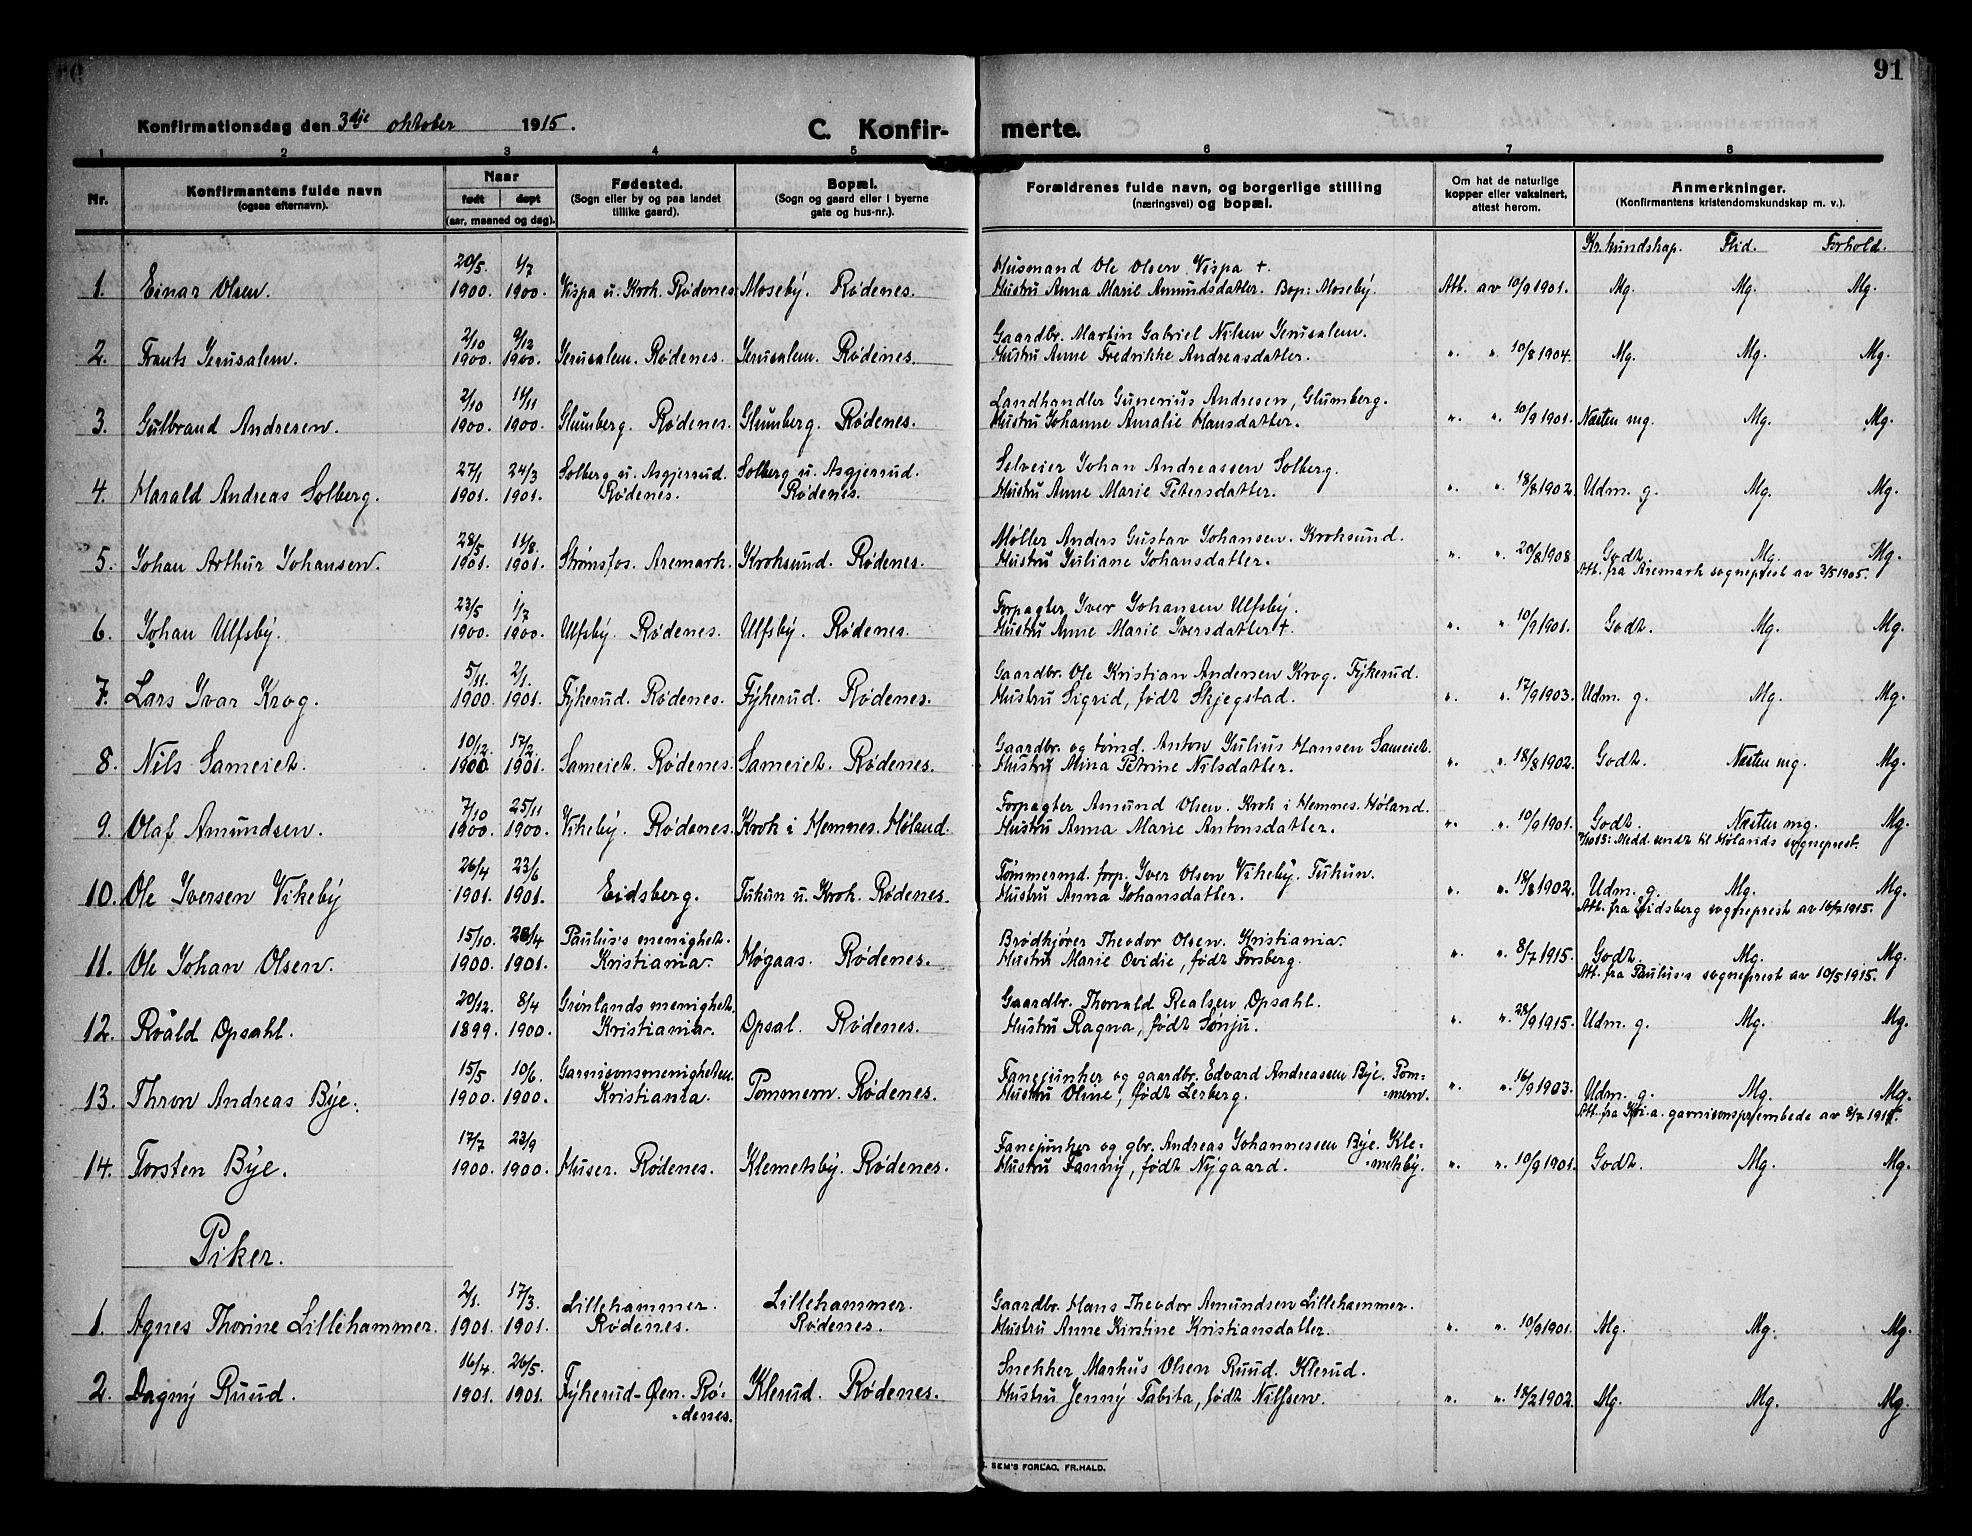 91
Konfirmationsdag den 3dje oktober 1915.
C. Konfirmerte.
1 2 3 4 5 6 7 8
Nr.
Konfirmantens fulde navn
(ogsaa efternavn).
Naar
født døpt
(aar, maaned og dag).
Fødested.
(Sogn eller by og paa landet
tillike gaard).
Bopæl.
(Sogn og gaard eller i byerne
gate og hus-nr.).
Forældrenes fulde navn, og borgerlige stilling
(næringsvei) og bopæl.
Om hat de naturlige
kopper eller vaksinert,
attest herom.
Anmerkninger.
(Konfirmantens kristendomskundskap m. v.).
Kr.kundskap. Flid. Forhold.
20/5. 1/7 Husmand Ole Olsen Vispa +.
1. Einar Olsen. 1900. 1900. Vispa u. Krok. Rødenes. Moseby. Rødenes. Hustru Anna Marie Amundsdatter. Bop: Moseby. Att. av 10/9 1901. Mg. Mg. Mg.
2/10 9/12 Gaardbr. Martin Gabriel Nilsen Jerusalem.
2. Frants Jerusalem. 1900. 1900. Jerusalem. Rødenes. Jerusalem. Rødenes. Hustru Anne Fredrikke Andreasdatter. " " 10/8 1904. Mg. Mg. Mg.
2/10 11/11 Landhandler Gunerius Andresen, Glumberg.
3. Gulbrand Andresen. 1900. 1900. Glumberg. Rødenes. Glumberg. Rødenes. Hustru Johanne Amalie Hansdatter. " " 10/9 1901. Næsten mg. Mg. Mg.
27/1 24/3 Solberg u. Asgjerrud. Solberg u. Asgjerrud. Selveier Johan Andreassen Solberg.
4. Harald Andreas Solberg. 1901. 1901. Rødenes. Rødenes. Hustru Anne Marie Petersdatter. " " 18/8 1902. Udm. g. Mg. Mg.
28/5 11/8. Møller Anders Gustav Johansen. Kroksund.
5. Johan Arthur Johansen. 1901. 1901. Strømsfos. Aremark. Kroksund. Rødenes. Hustru Juliane Johansdatter. " " 20/8 1908 Godt. Mg. Mg.
Att. fra Aremark sogneprest av 3/5 1905.
23/5 1/7 Forpagter Iver Johansen Ulfsby.
6. Johan Ulfsby. 1900. 1900. Ulfsby. Rødenes. Ulfsby. Rødenes. Hustru Anne Marie Iversdatter +. " " 10/9 1901. Godt. Mg. Mg.
5/11. 2/1. Gaardbr. Ole Kristian Andersen Krog. Fykerud.
7. Lars Ivar Krog. 1900. 1901. Fykerud. Rødenes. Fykerud. Rødenes. Hustru Sigrid, født Skjegstad. " " 17/9 1903. Udm. g. Mg. Mg.
10/12. 17/2. Gaardbr. og tømd. Anton Julius Hansen Sameiet.
8. Nils Sameiet. 1900 1901. Sameiet. Rødenes. Sameiet. Rødenes. Hustru Mina Petrine Nilsdatter. " " 18/8 1902. Godt. Næsten mg. Mg.
7/10 25/11 Forpagter Amund Olsen. Krok i Hemnes. Høland.
9. Olaf Amundsen. 1900. 1900. Vikeby. Rødenes. Krok i Hemnes. Høland. Hustru Anna Marie Antonsdatter. " " 10/9 1901. Godt. Næsten mg. Mg.
Medd. sendt til Hølands sogneprest.
26/4 23/6 Tømmermd. forp. Iver Olsen Vikeby. Tukun.
10. Ole Iversen Vikeby 1901. 1901. Eidsberg. Tukun u. Krok. Rødenes. Hustru Anna Johansdatter. " " 18/8 1902. Udm. g. Mg. Mg.
Att. fra Eidsberg sogneprest av 16/7 1915.
15/10. 28/4 Paulus's menighet. Brødkjører Theodor Olsen. Kristiania.
11. Ole Johan Olsen. 1900. 1901. Kristiania. Høgaas. Rødenes. Hustru Marie Ovidie, født Forsberg. " " 8/7 1915. Godt. Mg. Mg.
Att. fra Paulus's sogneprest av 10/5 1915.
20/12. 8/4 Grønlands menighet. Gaardbr. Thorvald Realsen Opsahl.
12. Roald Opsahl. 1899. 1900. Kristiania. Opsal. Rødenes. Hustru Ragna, født Sønju. " " 28/9 1915. Udm. g. Mg. Mg.
15/5 10/6. Garnisonsmenigheten. Fanejunker og gaardbr. Edvard Andreassen Bye. Pom=
13. Thron Andreas Bye. 1900. 1900. Kristiania. Pommern. Rødenes. Hustru Oline, født Lerberg. =mern. " " 16/9 1903. Udm. g. Mg. Mg.
Att. fra Kr.a. garnisonsprembede av 8/7 1915.
17/7 23/9 Fanejunker og gbr. Andreas Johannessen Bye. Kle=
14. Torsten Bye. 1900. 1900. Huser. Rødenes. Klemetsby. Rødenes. Hustru Fanny, født Nygaard. =metsby. " " 10/9 1901. Godt. Mg. Mg.
Piker.
2/1. 17/3. Lillehammer. Lillehammer. Gaardbr. Hans Theodor Amundsen Lillehammer.
1. Agnes Thorine Lillehammer. 1901. 1901. Rødenes. Rødenes. Hustru Anne Kirstine Kristiansdatter. " " 10/9 1901. Mg. Mg. Mg.
16/4. 26/5. Snekker Markus Olsen Ruud. Klerud.
2. Dagny Ruud. 1901. 1901. Fykerud-Øen. Rø= Klerud. Rødenes. Hustru Jenny Tabita, født Nilssen. " " 18/2 1902. Mg. Mg. Mg.
=denes.
SEM'S FORLAG, FR.HALD.